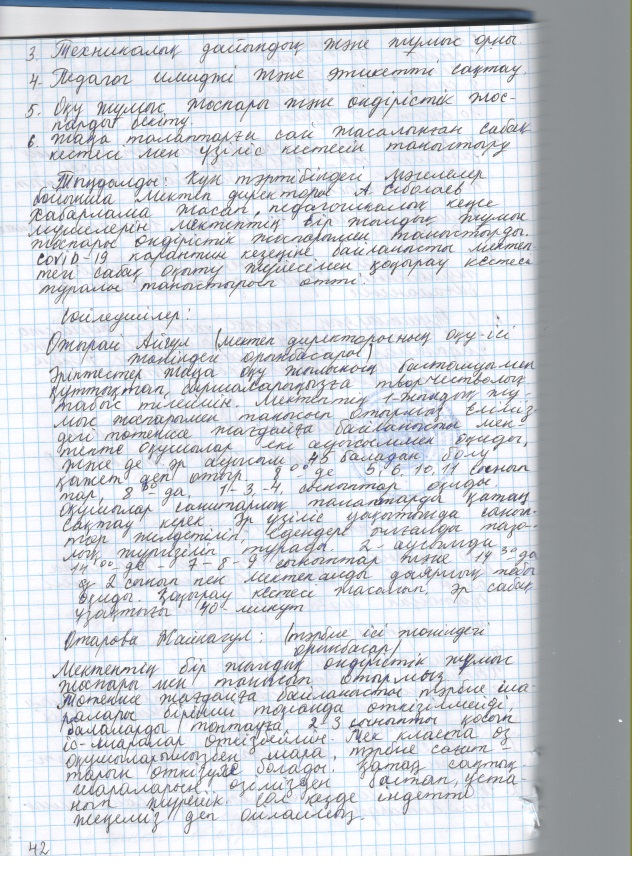 3. Техникалық дайындық және жұмыс орны.
4. Педагог имиджі және этикетті сақтау.
5. Оқу жұмыс жоспары және өндірістік жос-
парды бекіту.
6. Жаңа талаптарға сай жасалынған сабақ
кестесі мен үзіліс кестесін таныстыру
Тыңдалды: Күн тәртібіндегі мәселелер
бойынша мектеп директоры А.
хабарлама жасап, педагогикалық кеңес
мүшелерін мектептің бір жылдық жұмыс
жоспары өндірістік жоспарымен таныстырды.
COVID-19 карантин кезеңіне байланысты мектеп-
тегі сабақ оқыту жүйесімен қоңырау кестесі
туралы таныстырып өтті.
Сөйлеушілер:
Айгүл (мектеп директорының оқу-ісі
жөніндегі орынбасары)
Әріптестер жаңа оқу жылының басталуымен
құттықтап, баршаларыңызға творчестволық
табыс тілеймін. Мектептің 1-жылдық жұ-
мыс жоспарымен танысып отырмыз. Еліміз-
дегі төтенше жағдайға байланысты мек-
тепте оқушылар екі ауысыммен оқиды,
және де әр ауысым 45 баладан болу
қажет деп отыр. 8 00 де 5, 6, 10, 11 сынып
тар, 8 30 да, 1-3-4, сыныптар оқиды.
Оқушылар санитарлық талаптарды қатаң
сақтау керек. Әр үзіліс уақытында сынып-
тар желдетіліп, едендері ылғалды таза-
лық жүргізіліп тұрады. 2-ауысымда
14 00-де - 7-8-9 сыныптар және 14 30 да
2 сынып пен мектепалды даярлық тобы
оқиды. Қоңырау кестесі жасалып, әр сабақ
ұзақтығы 40-минут
Отарова Жайнагүл: (тәрбие ісі жөніндегі
орынбасар)
Мектептің бір жылдық өндірістік жұмыс
жоспары мен танысып отырмыз
Төтенше жағдайға байланысты тәрбие іша
ралары бірінші тоқсанда өткізілмейді,
балаларды топтауға 2-3 сыныпты қосып
іс-шаралар өткізбейміз. Тек класта өз
оқушыларымызбен шара, тәрбие сағат-
тарын өткізуге болады. Қатаң сақтық
шараларын өзімізден бастап, ұста-
нып жүрейік. Сол кезде індетті
жеңеміз деп ойлаймын.
42